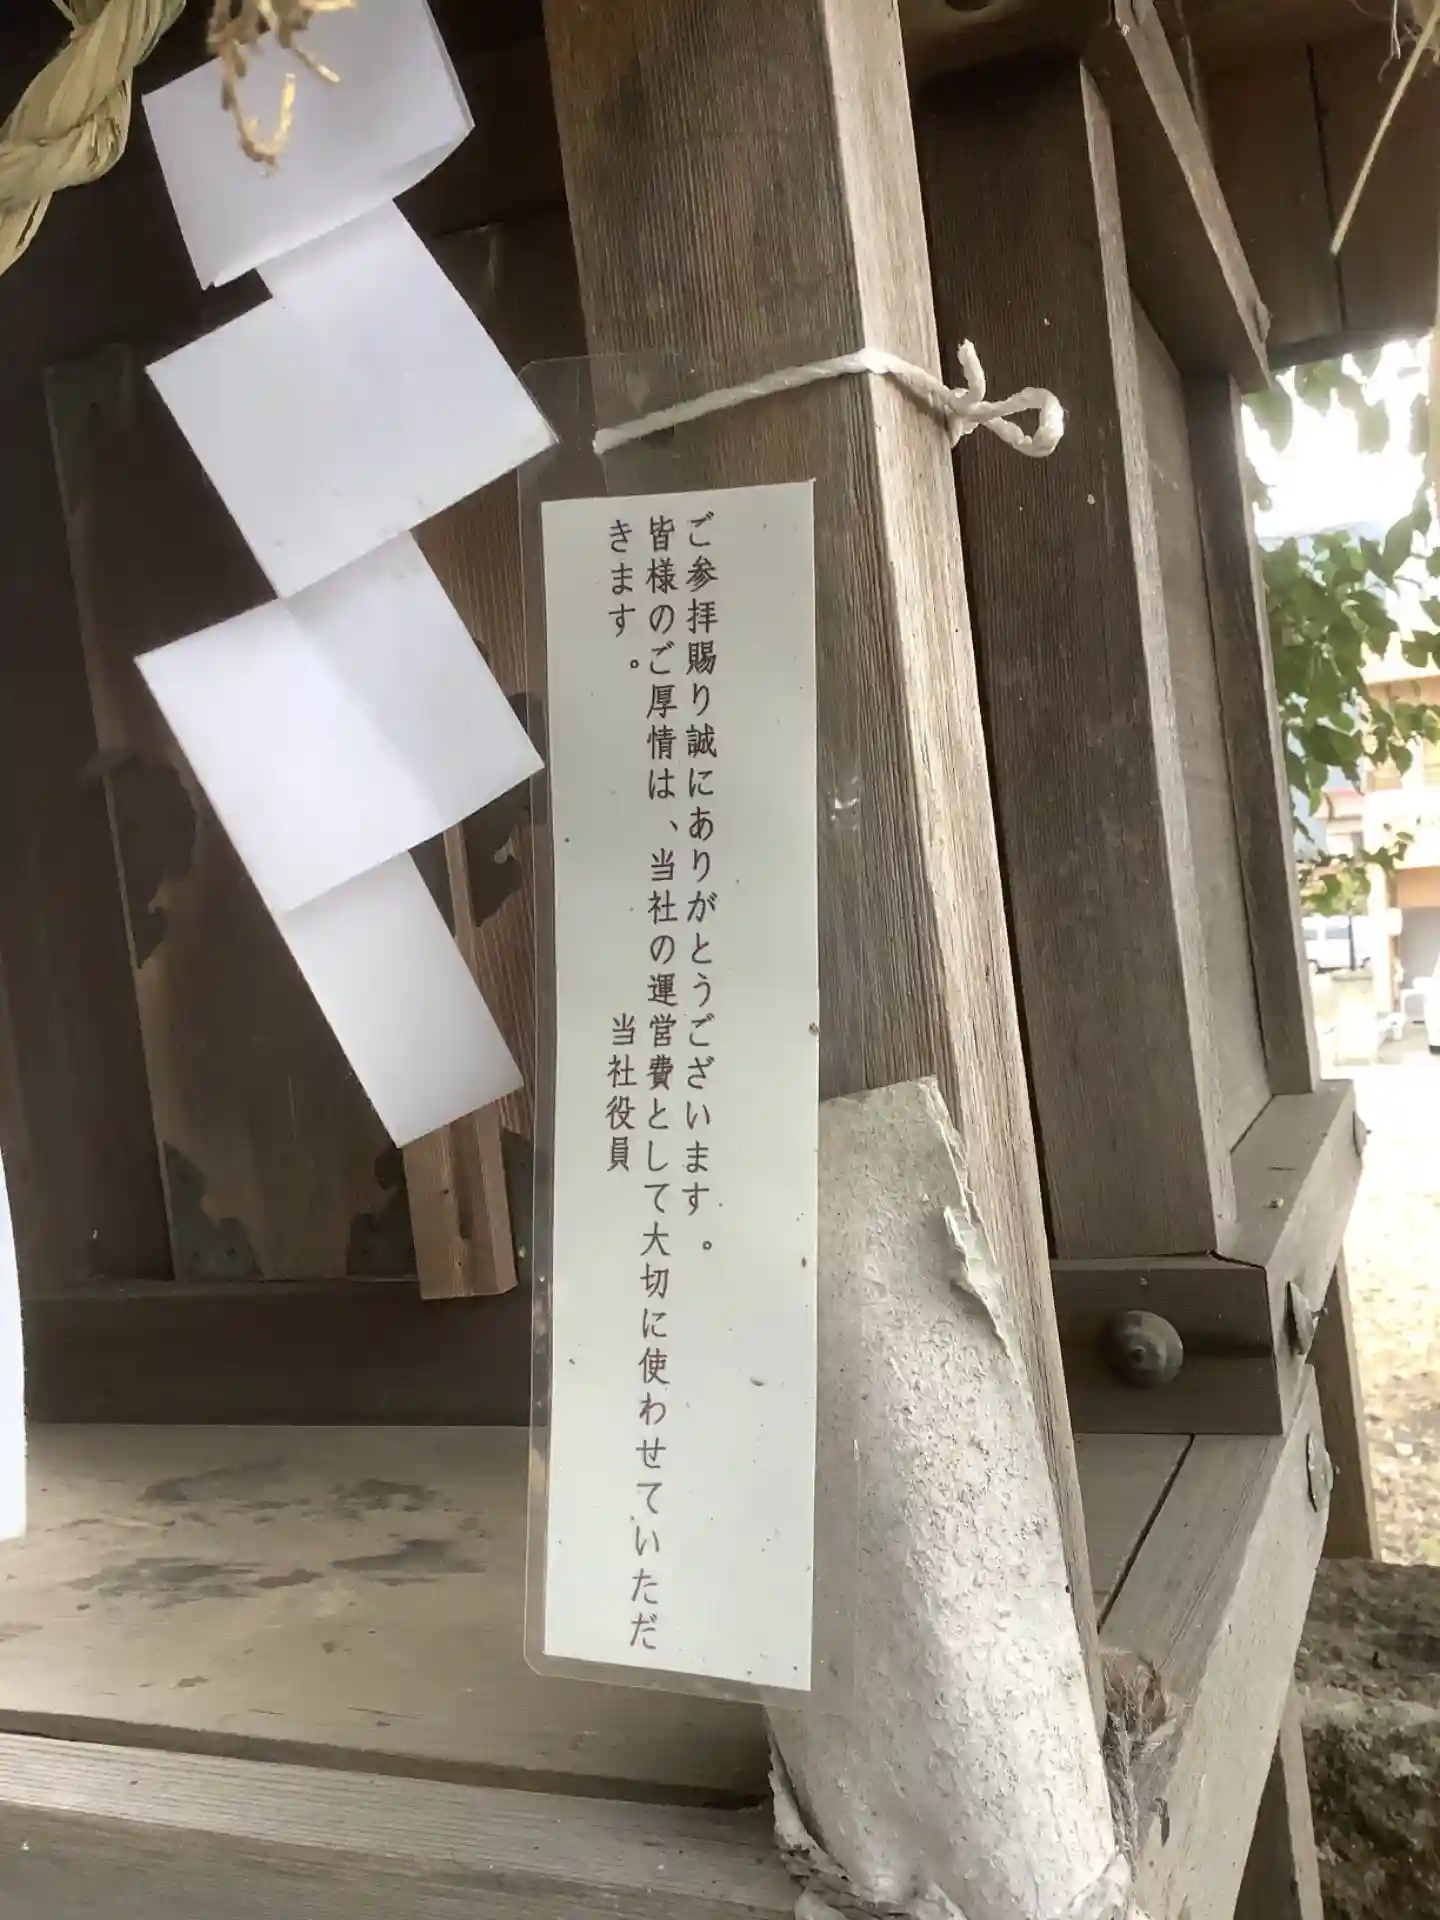 ご参拝賜り誠にありがとうございます。
皆様のご厚情は、当社の運営費として大切に使わせていただ
きます。
当社役員